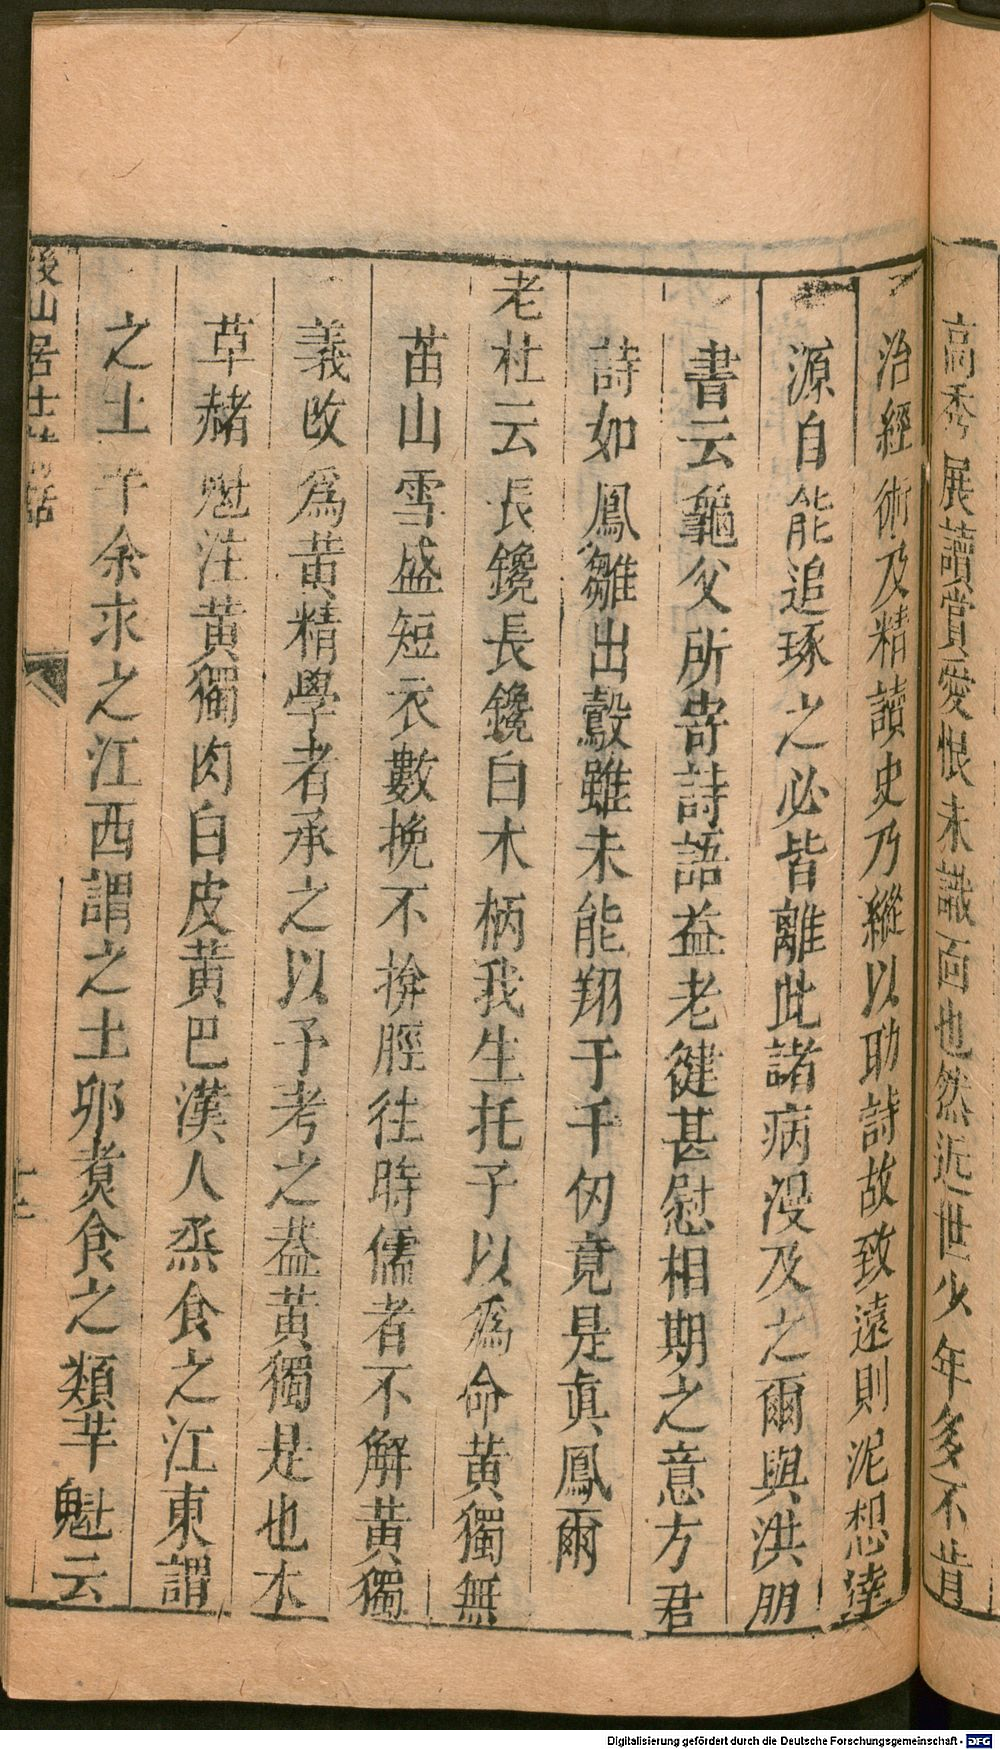 高秀展讀賞愛恨未識面也然近世少年多不肯
治經術及精讀史乃縱以助詩故致遠則泥想達
源自能追琢之必皆離此諸病漫及之爾與洪朋
書云龜父所寄詩語益老健甚慰相期之意方君
詩如鳳雛出鷇雖未能翔于千仞竟是眞鳳爾
老杜云長鑱長鑱白木柄我生托子以爲命黄獨無
苗山雪盛短衣數挽不揜脛往時儒者不解黄獨
義改爲黄精學者承之以予考之葢黄獨是也本
草赭魁注黄獨肉白皮黄巴漢人烝食之江東謂
之土芋余求之江西謂之土卵煮食之類芋魁云
後山居士詩話
Digitalisierung gefördert durch die Deutsche Forschungsgemeinschaft - DFG